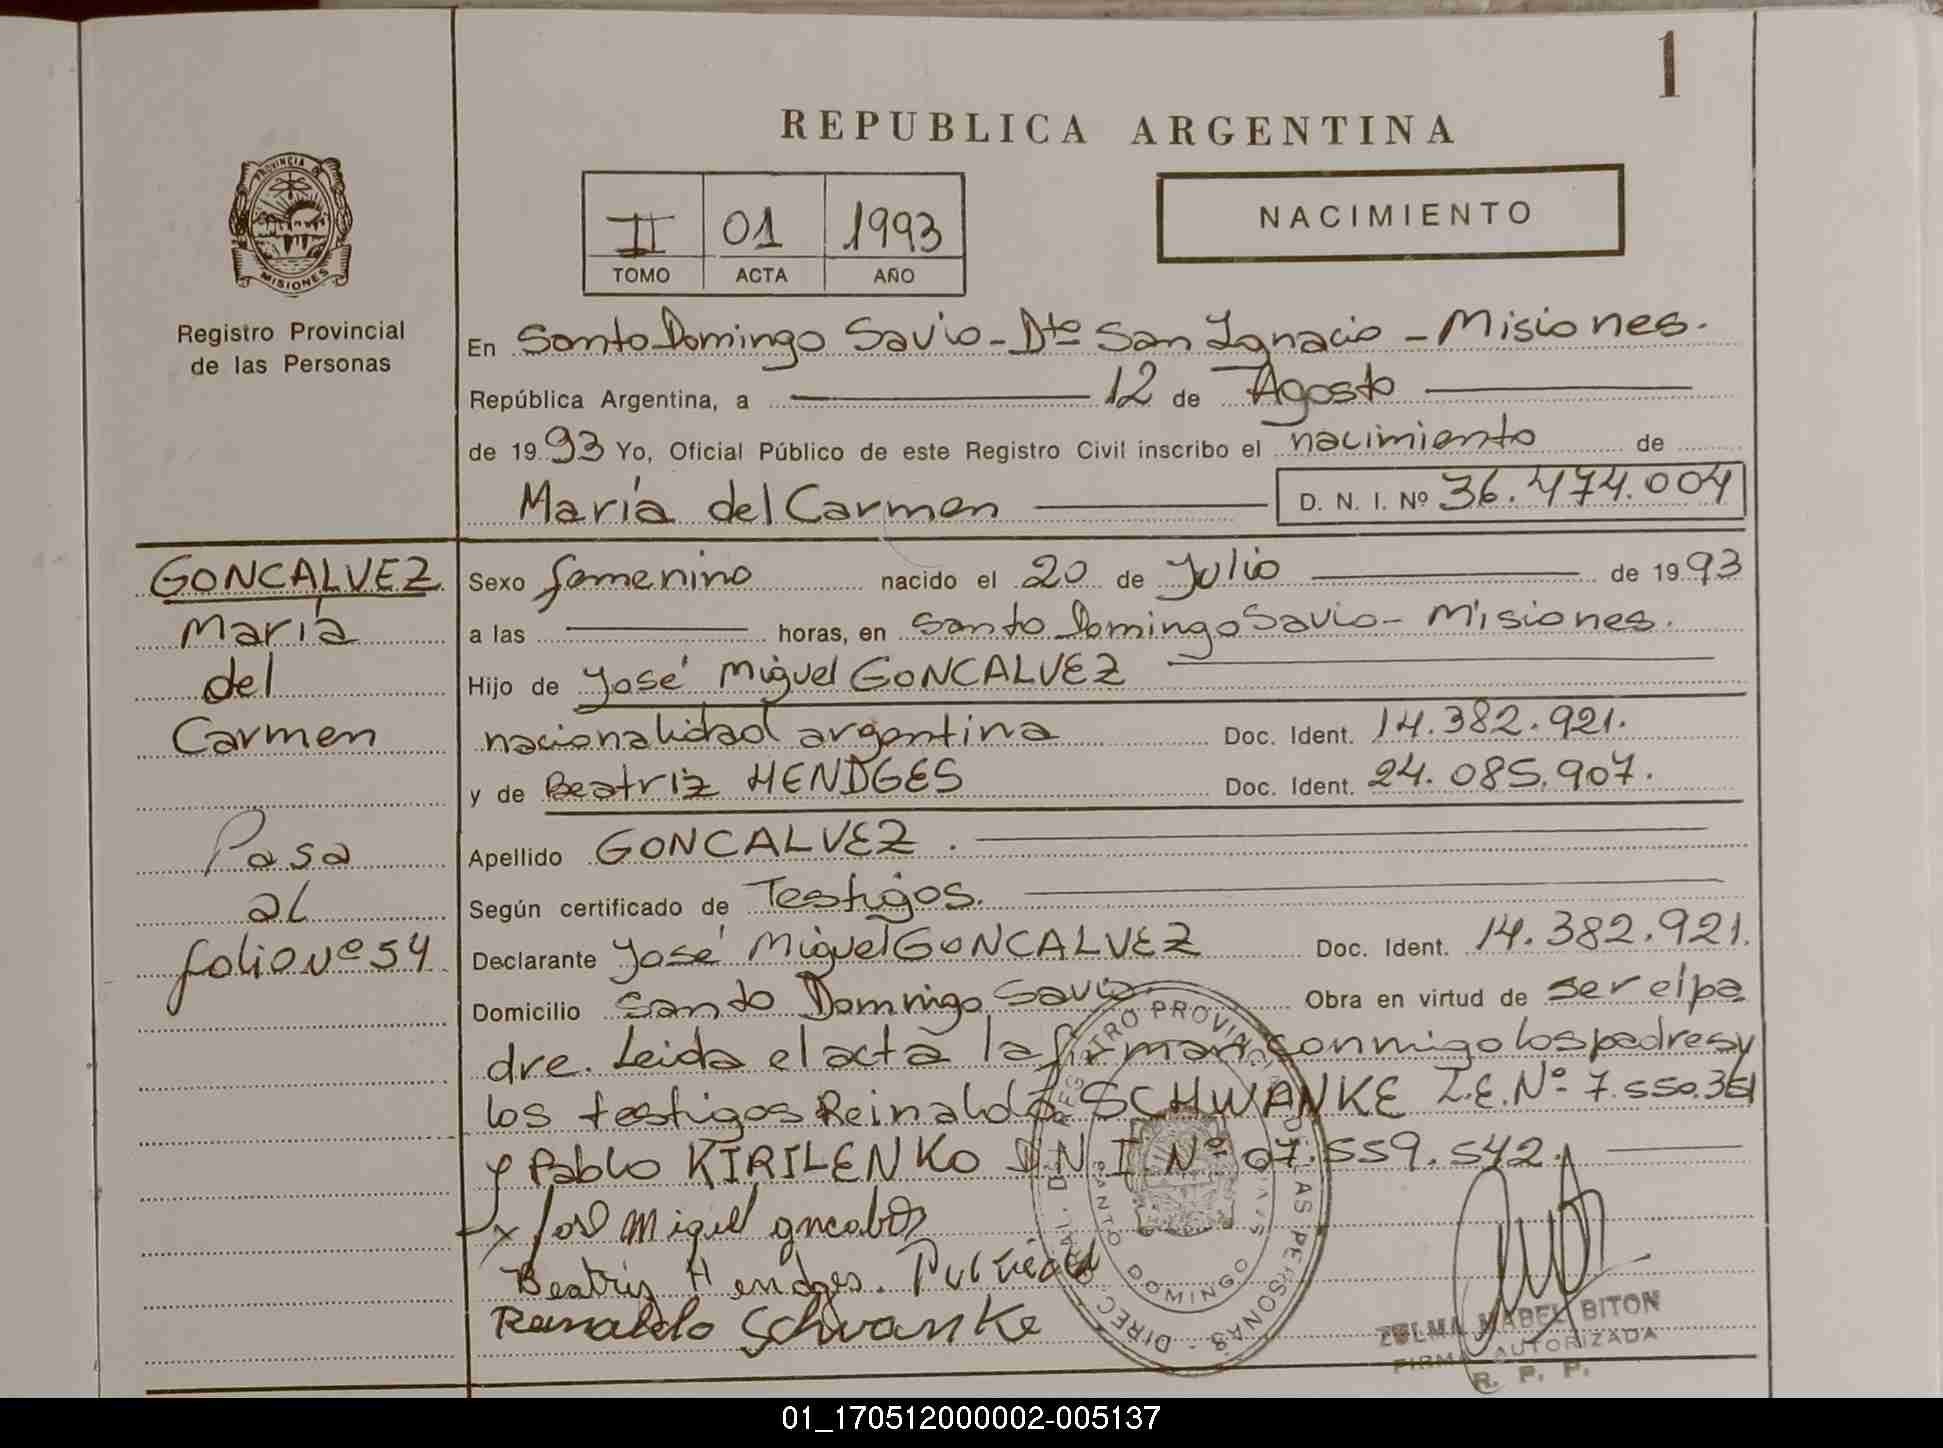 1
REPUBLICA ARGENTINA
PROVINCIA D
MISIONES
Registro Provincial
de las Personas
II 01 1993
TOMO ACTA AÑO
NACIMIENTO
En Santo Domingo Savio - Dto San Ignacio - Misiones.
República Argentina, a 12 de Agosto
de 1993 Yo, Oficial Público de este Registro Civil inscribo el nacimiento de
María del Carmen D. N. I. Nº 36.474.004
GONCALVEZ
María
del
Carmen
Pasa
al
folio Nº 54
Sexo femenino nacido el 20 de Julio de 1993
a las horas, en Santo Domingo Savio - Misiones.
Hijo de José Miguel GONCALVEZ
nacionalidad argentina Doc. Ident. 14.382.921.
y de Beatriz HENDGES Doc. Ident. 24.085.907.
Apellido GONCALVEZ.
Según certificado de Testigos.
Declarante José Miguel GONCALVEZ Doc. Ident. 14.382.921.
Domicilio Santo Domingo Savio. Obra en virtud de ser el pa
dre. Leida el acta la firman conmigo los padres y
los testigos Reinaldo SCHWANKE L.E. Nº 7.550.351
y Pablo KIRILENKO D N I Nº 07.559.542.
x José Miguel
Beatriz Hendges.
Reinaldo Schwanke
DIREC. GRAL. DEL REGISTRO PROVINCIAL DE LAS PERSONAS
SANTO DOMINGO SAVIO
ZULMA MABEL BITON
FIRMA AUTORIZADA
R. P. P.
01_170512000002-005137